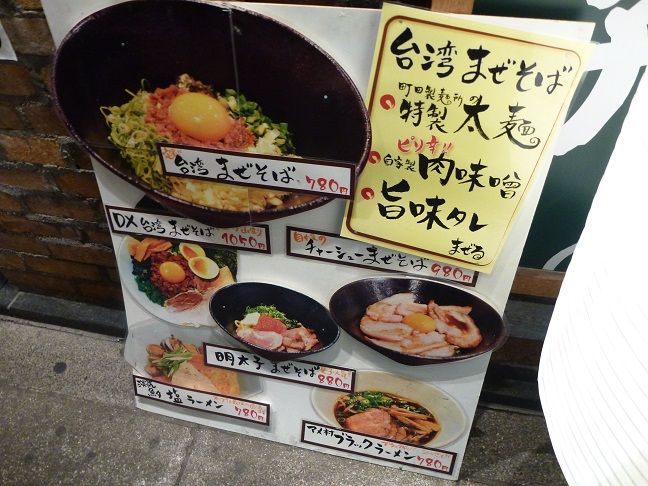 台湾まぜそば
町田製麺所の
特製太麺
ピリ辛!!
自家製肉味噌
旨味タレ
まぜる
台湾まぜそば 780円
DX台湾まぜそば 1050円
チャーシューまぜそば 980円
明太子まぜそば 880円
塩ラーメン 780円
アメ村ブラックラーメン 780円